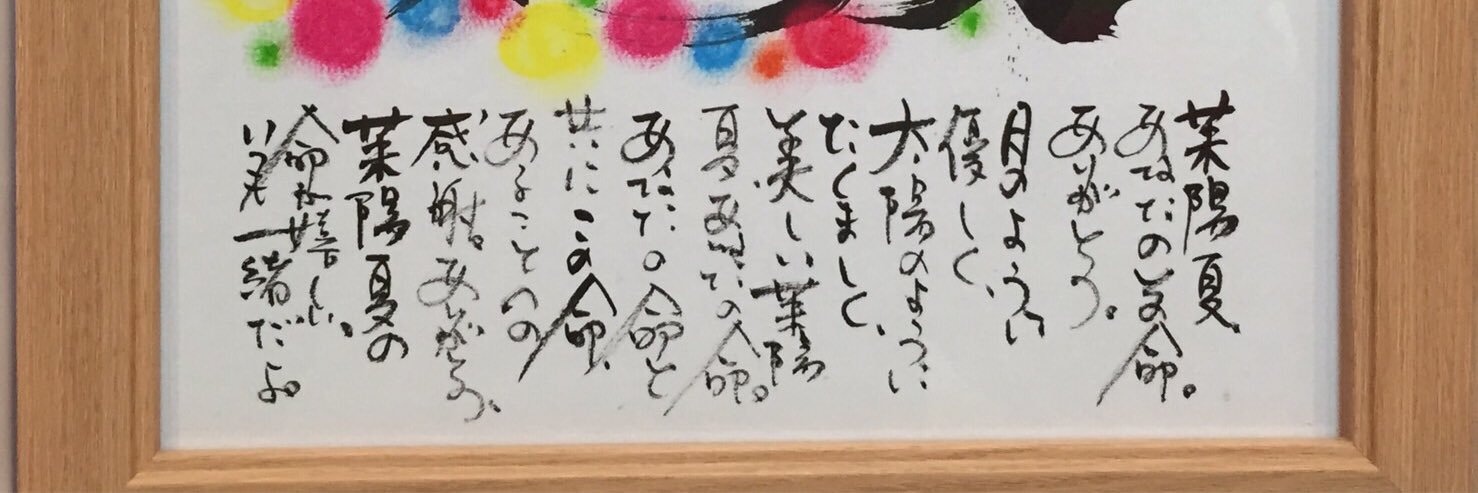 茉陽夏、
あなたの命。
ありがとう。
月のように
優しく、
太陽のように
たくましく、
美しい茉陽
夏、あなたの命。
あなたの命と
共にこの命、
あることへの
感謝。ありがとう、
茉陽夏の
命が嬉しい。
いつも一緒だよ。